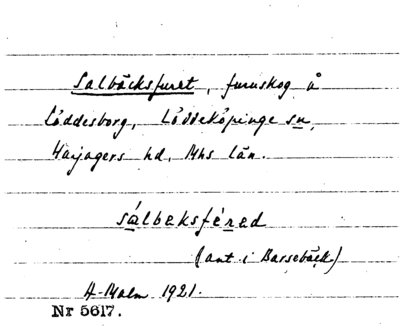 Salbäcksfuret, furuskog å
Löddesborg, Löddeköpinge sn,
Harjagers hd, Mhs län.
sálbeksféred
(ant i Barsebäck)
H. Malm 1921.
Nr 5617.